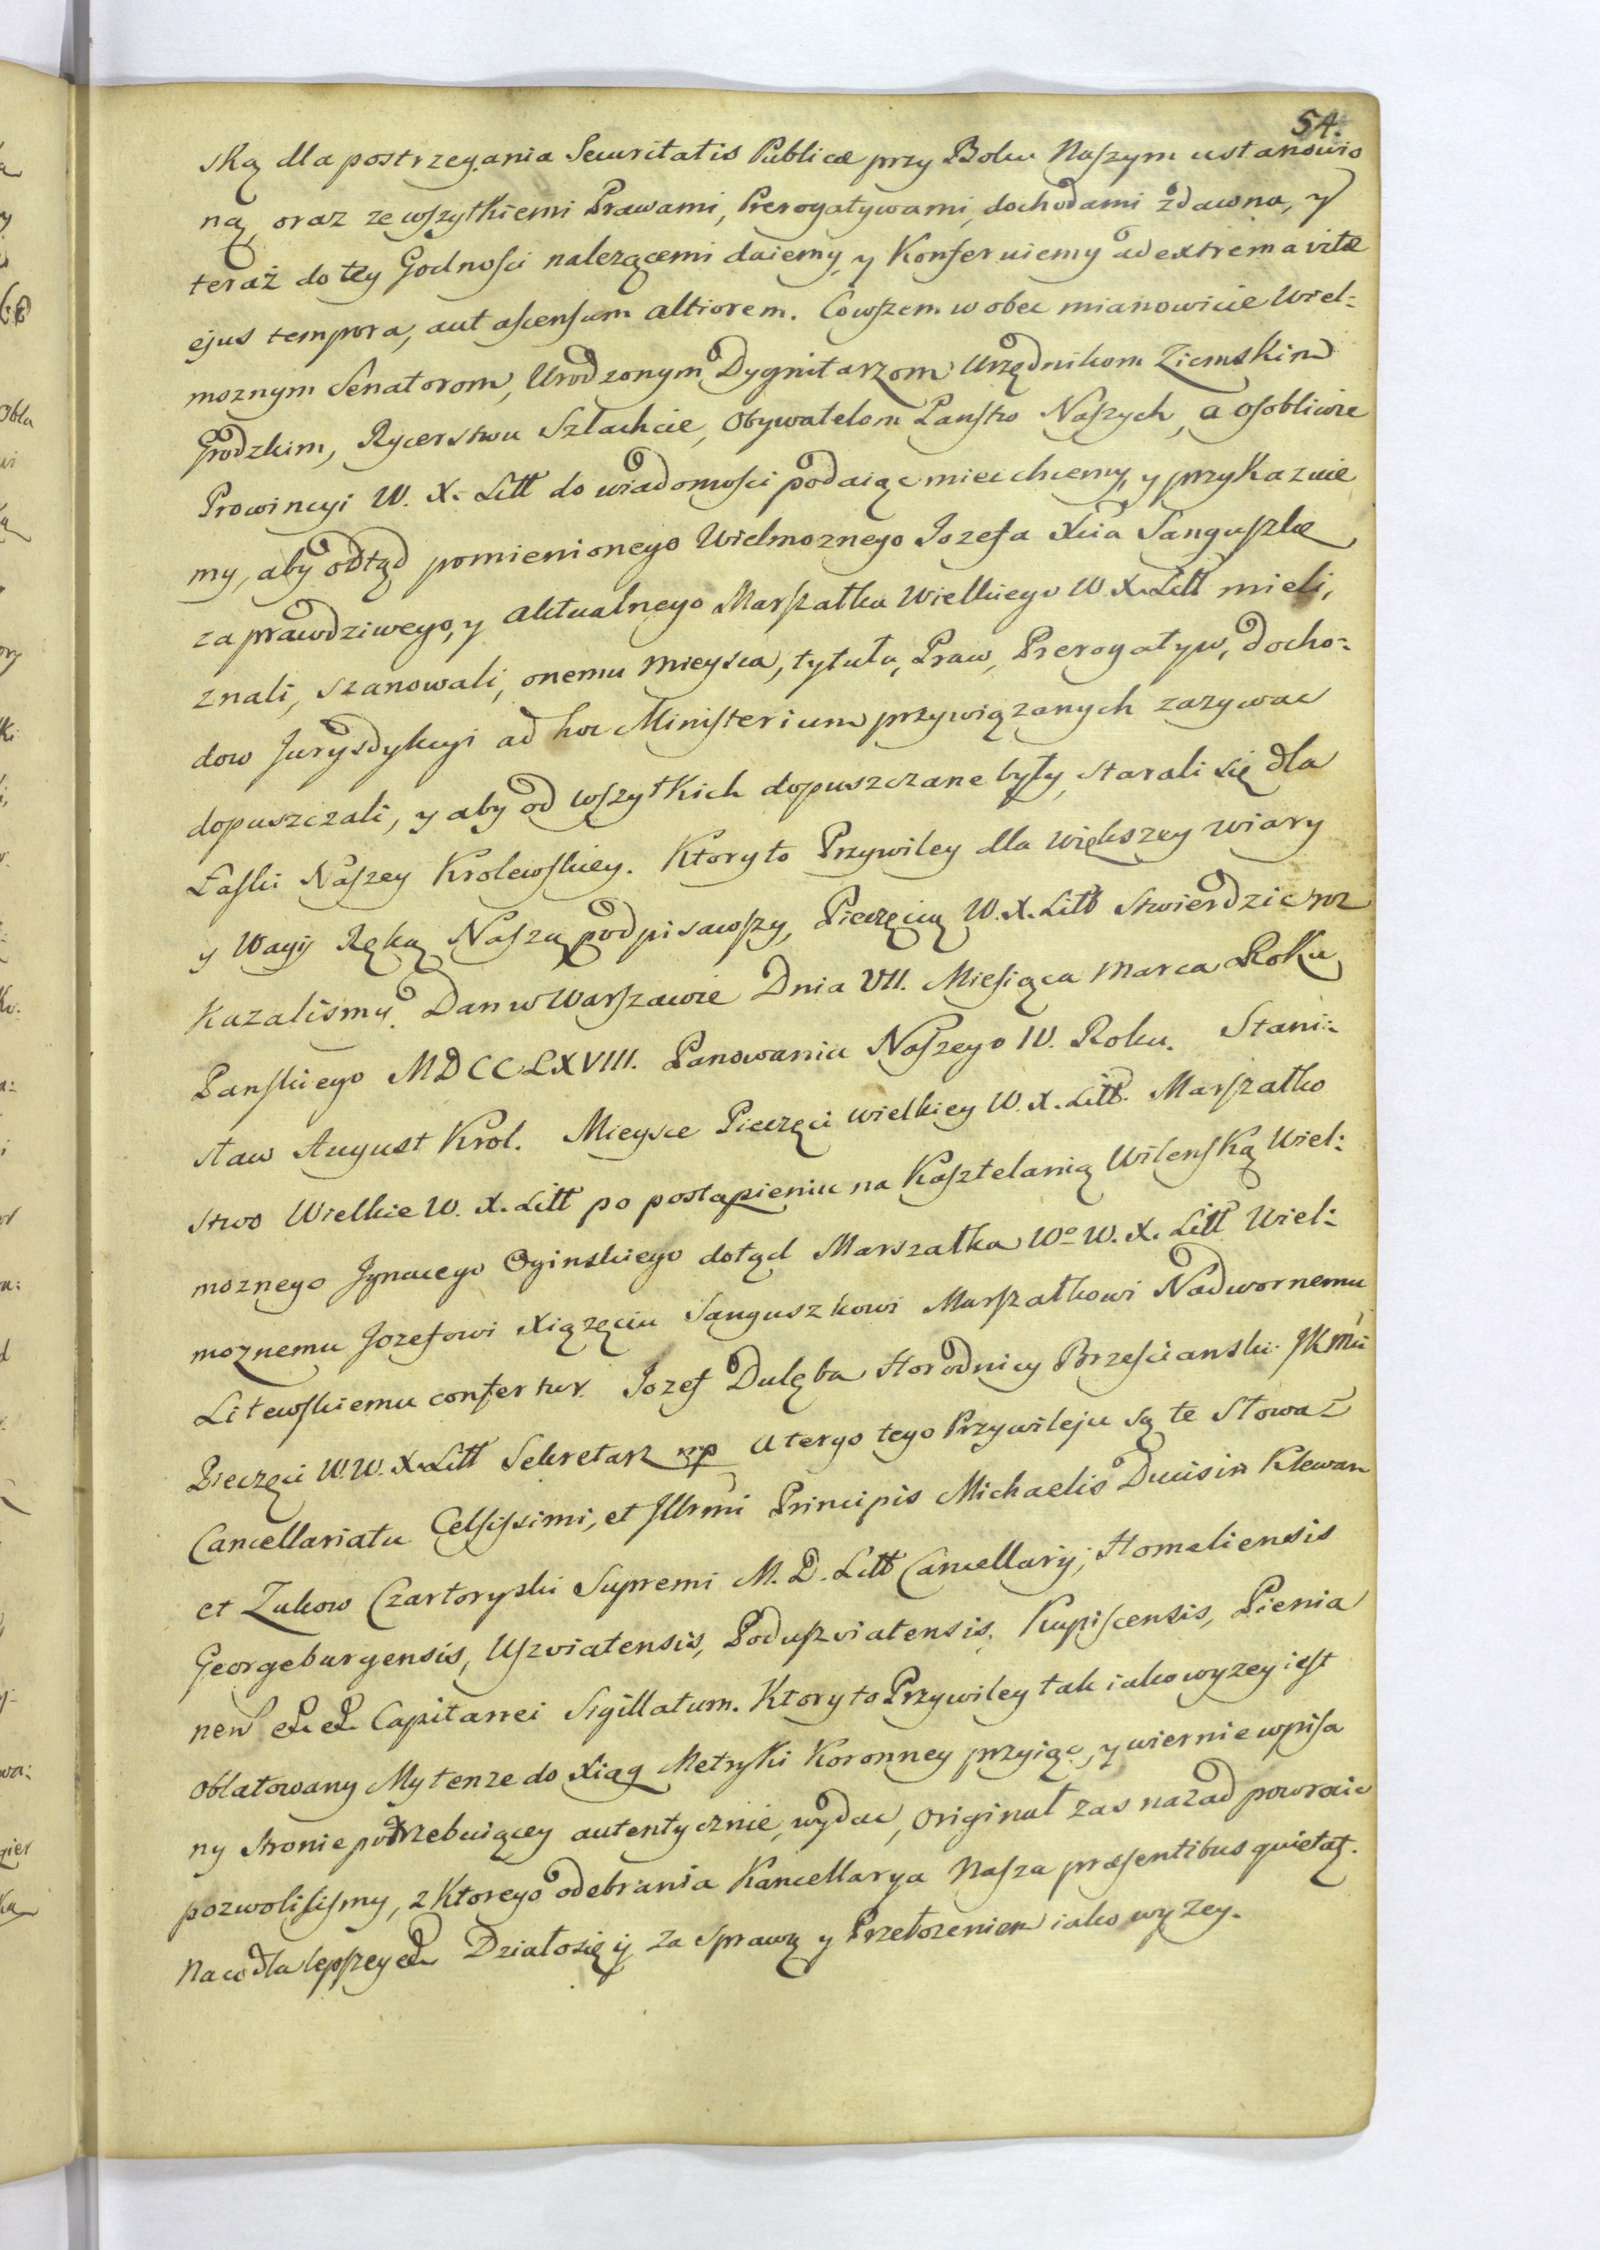 54.
ską dla postrzegania Securitatis Publicæ przy Boku Naszym ustanowio
ną, oraz ze wszytkiemi Prawami, Prerogatywami, dochodami zdawna, y
teraz do tey Godności nalezącemi daiemy, y Konferuiemy ad extrema vitæ
ejus tempora, aut ascensum altiorem. Co wszem wobec mianowicie Wiel:
moznym Senatorom, Urodzonym Dygnitarzom Urzędnikom Ziemskim
Grodzkim, Rycerstwu Szlachcie, Obywatelom Panstw Naszych, a osobliwie
Prowincyi W. X. Litt do wiadomości podaiąc miec chcemy, y przykazuie
my, aby odtąd pomienionego Wielmoznego Jozefa Xcia Sanguszkę
za prawdziwego, y aktualnego Marszałka Wielkiego W. X. Litt mieli,
znali, szanowali, onemu mieysca, tytułu, Praw, Prerogatyw, docho:
dow Jurysdykcyi ad hoc Ministerium przywiązanych zazywac
dopuszczali, y aby od wszytkich dopuszczane były, starali się dla
Łaski Naszey Krolewskiey. Ktoryto Przywiley dla większey wiary
y Wagi Ręką Naszą podpisawszy, Pieczęcią W. X. Litt stwierdzic
kazalismy. Dan w Warszawie Dnia VII. Miesiąca Marca Roku
Panskiego MDCCLXVIII. Panowania Naszego IV. Roku. Stani:
sław August Krol. Mieysce Pieczęci wielkiey W. X. Litt. Marszałko
stwo Wielkie W. X. Litt po postąpieniu na Kasztelanią Wilenską Wiel:
moznego Jgnacego Oginskiego dotąd Marszałka Wo W. X. Litt Wiel:
moznemu Jozefowi Xiązęciu Sanguszkowi Marszałkowi Nadwornemu
Litewskiemu confertur. Jozef Dulęba Horodnicy Brzesścianski JKmci
Pieczęci W. W. X. Litt Sekretarz mp A tergo tego Przywileju są te słowa:
Cancellariatu Celsissimi, et Jllrmi Principis Michaelis Ducis in Klewan
et Zukow Czartoryski Supremi M. D. Litt Cancellarij, Homeliensis
Georgeburgensis, Uszviatensis, Poduszviatensis, Kupiscensis, Pienia
nen et et Capitanei Sigillatum. Ktoryto Przywiley tak iako wyzey iest
oblatowany My tenze do Xiąg Metryki Koronney przyiąc, y wiernie wpisa
ny stronie potrzebuiącey autentycznie, wydac, originał zas nazad powrocic
pozwolilismy, z ktorego odebrania Kancellarya Nasza præsentibus quietat.
Na co dla lepszey et Działosię ij za sprawą y Przełozeniem iako wyzey.